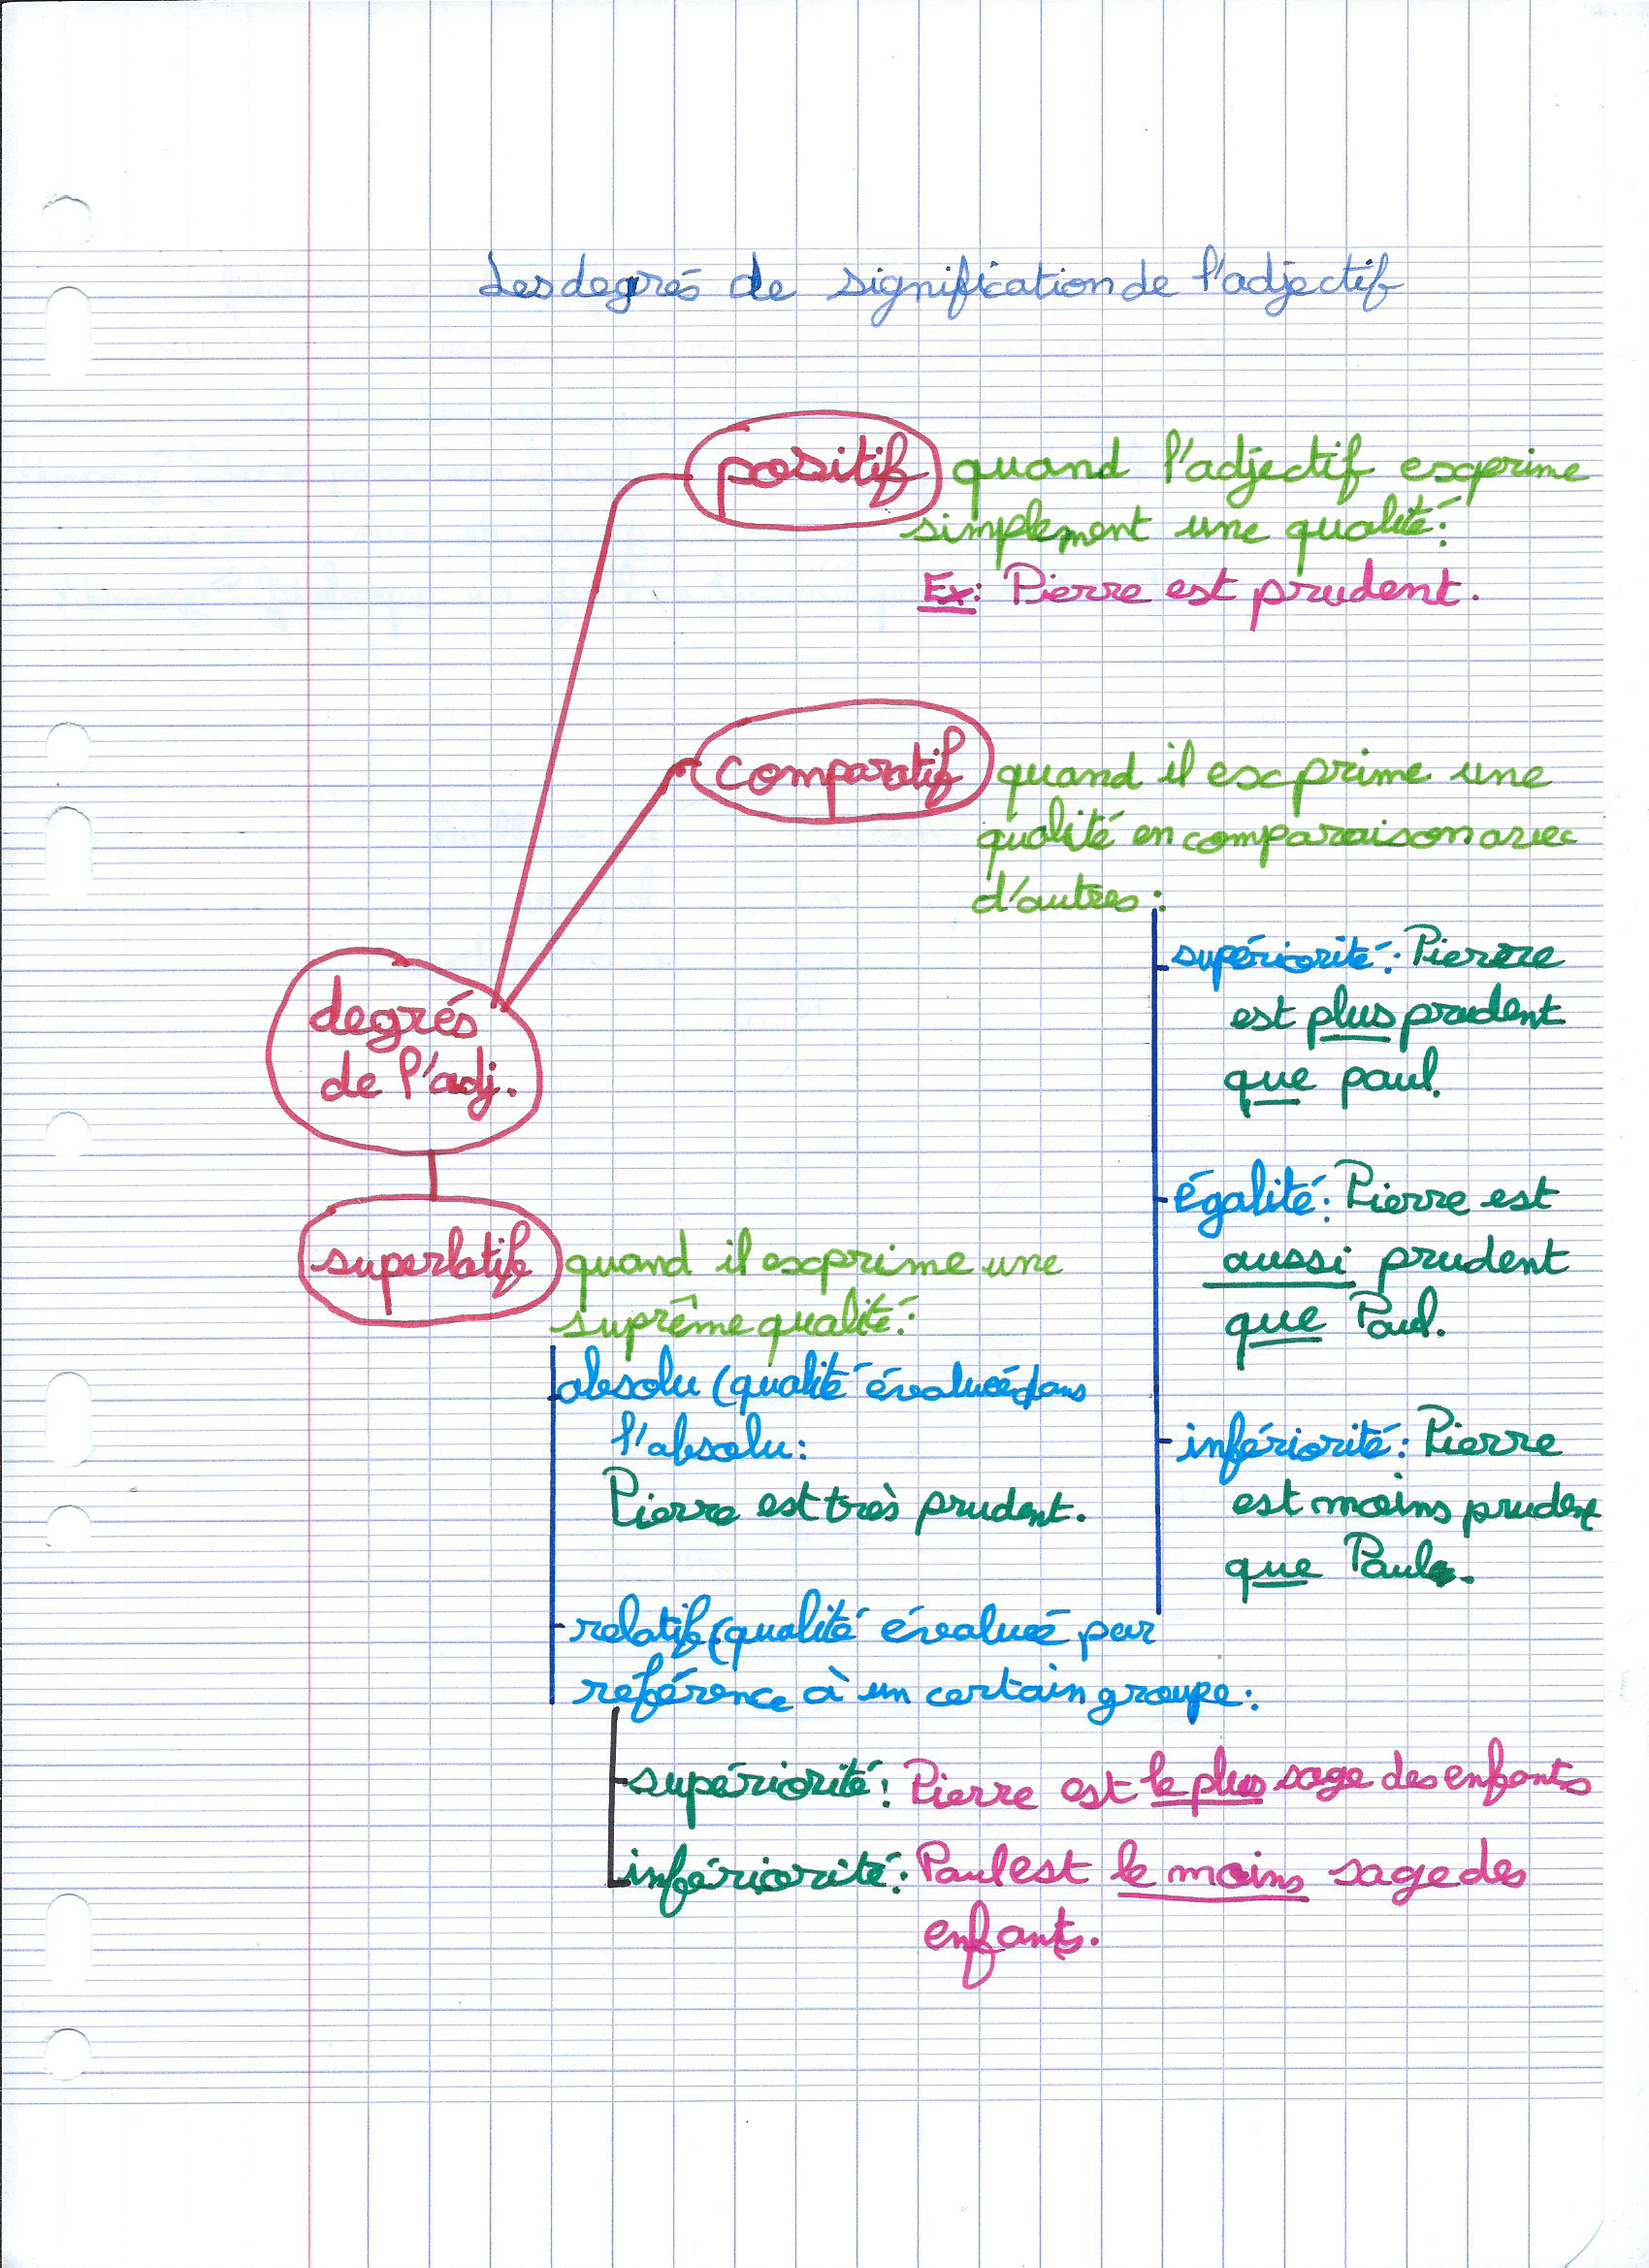 Les degrés de signification de l'adjectif
positif quand l'adjectif exprime
simplement une qualité:
Ex: Pierre est prudent.
comparatif quand il exprime une
qualité en comparaison avec
d'autres:
supériorité: Pierre
est plus prudent
que paul.
égalité: Pierre est
aussi prudent
que Paul.
infériorité: Pierre
est moins prudent
que Paul.
degrés
de l'adj.
superlatif quand il exprime une
suprême qualité:
absolu (qualité évaluée dans
l'absolu:
Pierre est très prudent.
relatif (qualité évaluée par
référence à un certain groupe:
supériorité: Pierre est le plus sage des enfants
infériorité: Paul est le moins sage des
enfants.